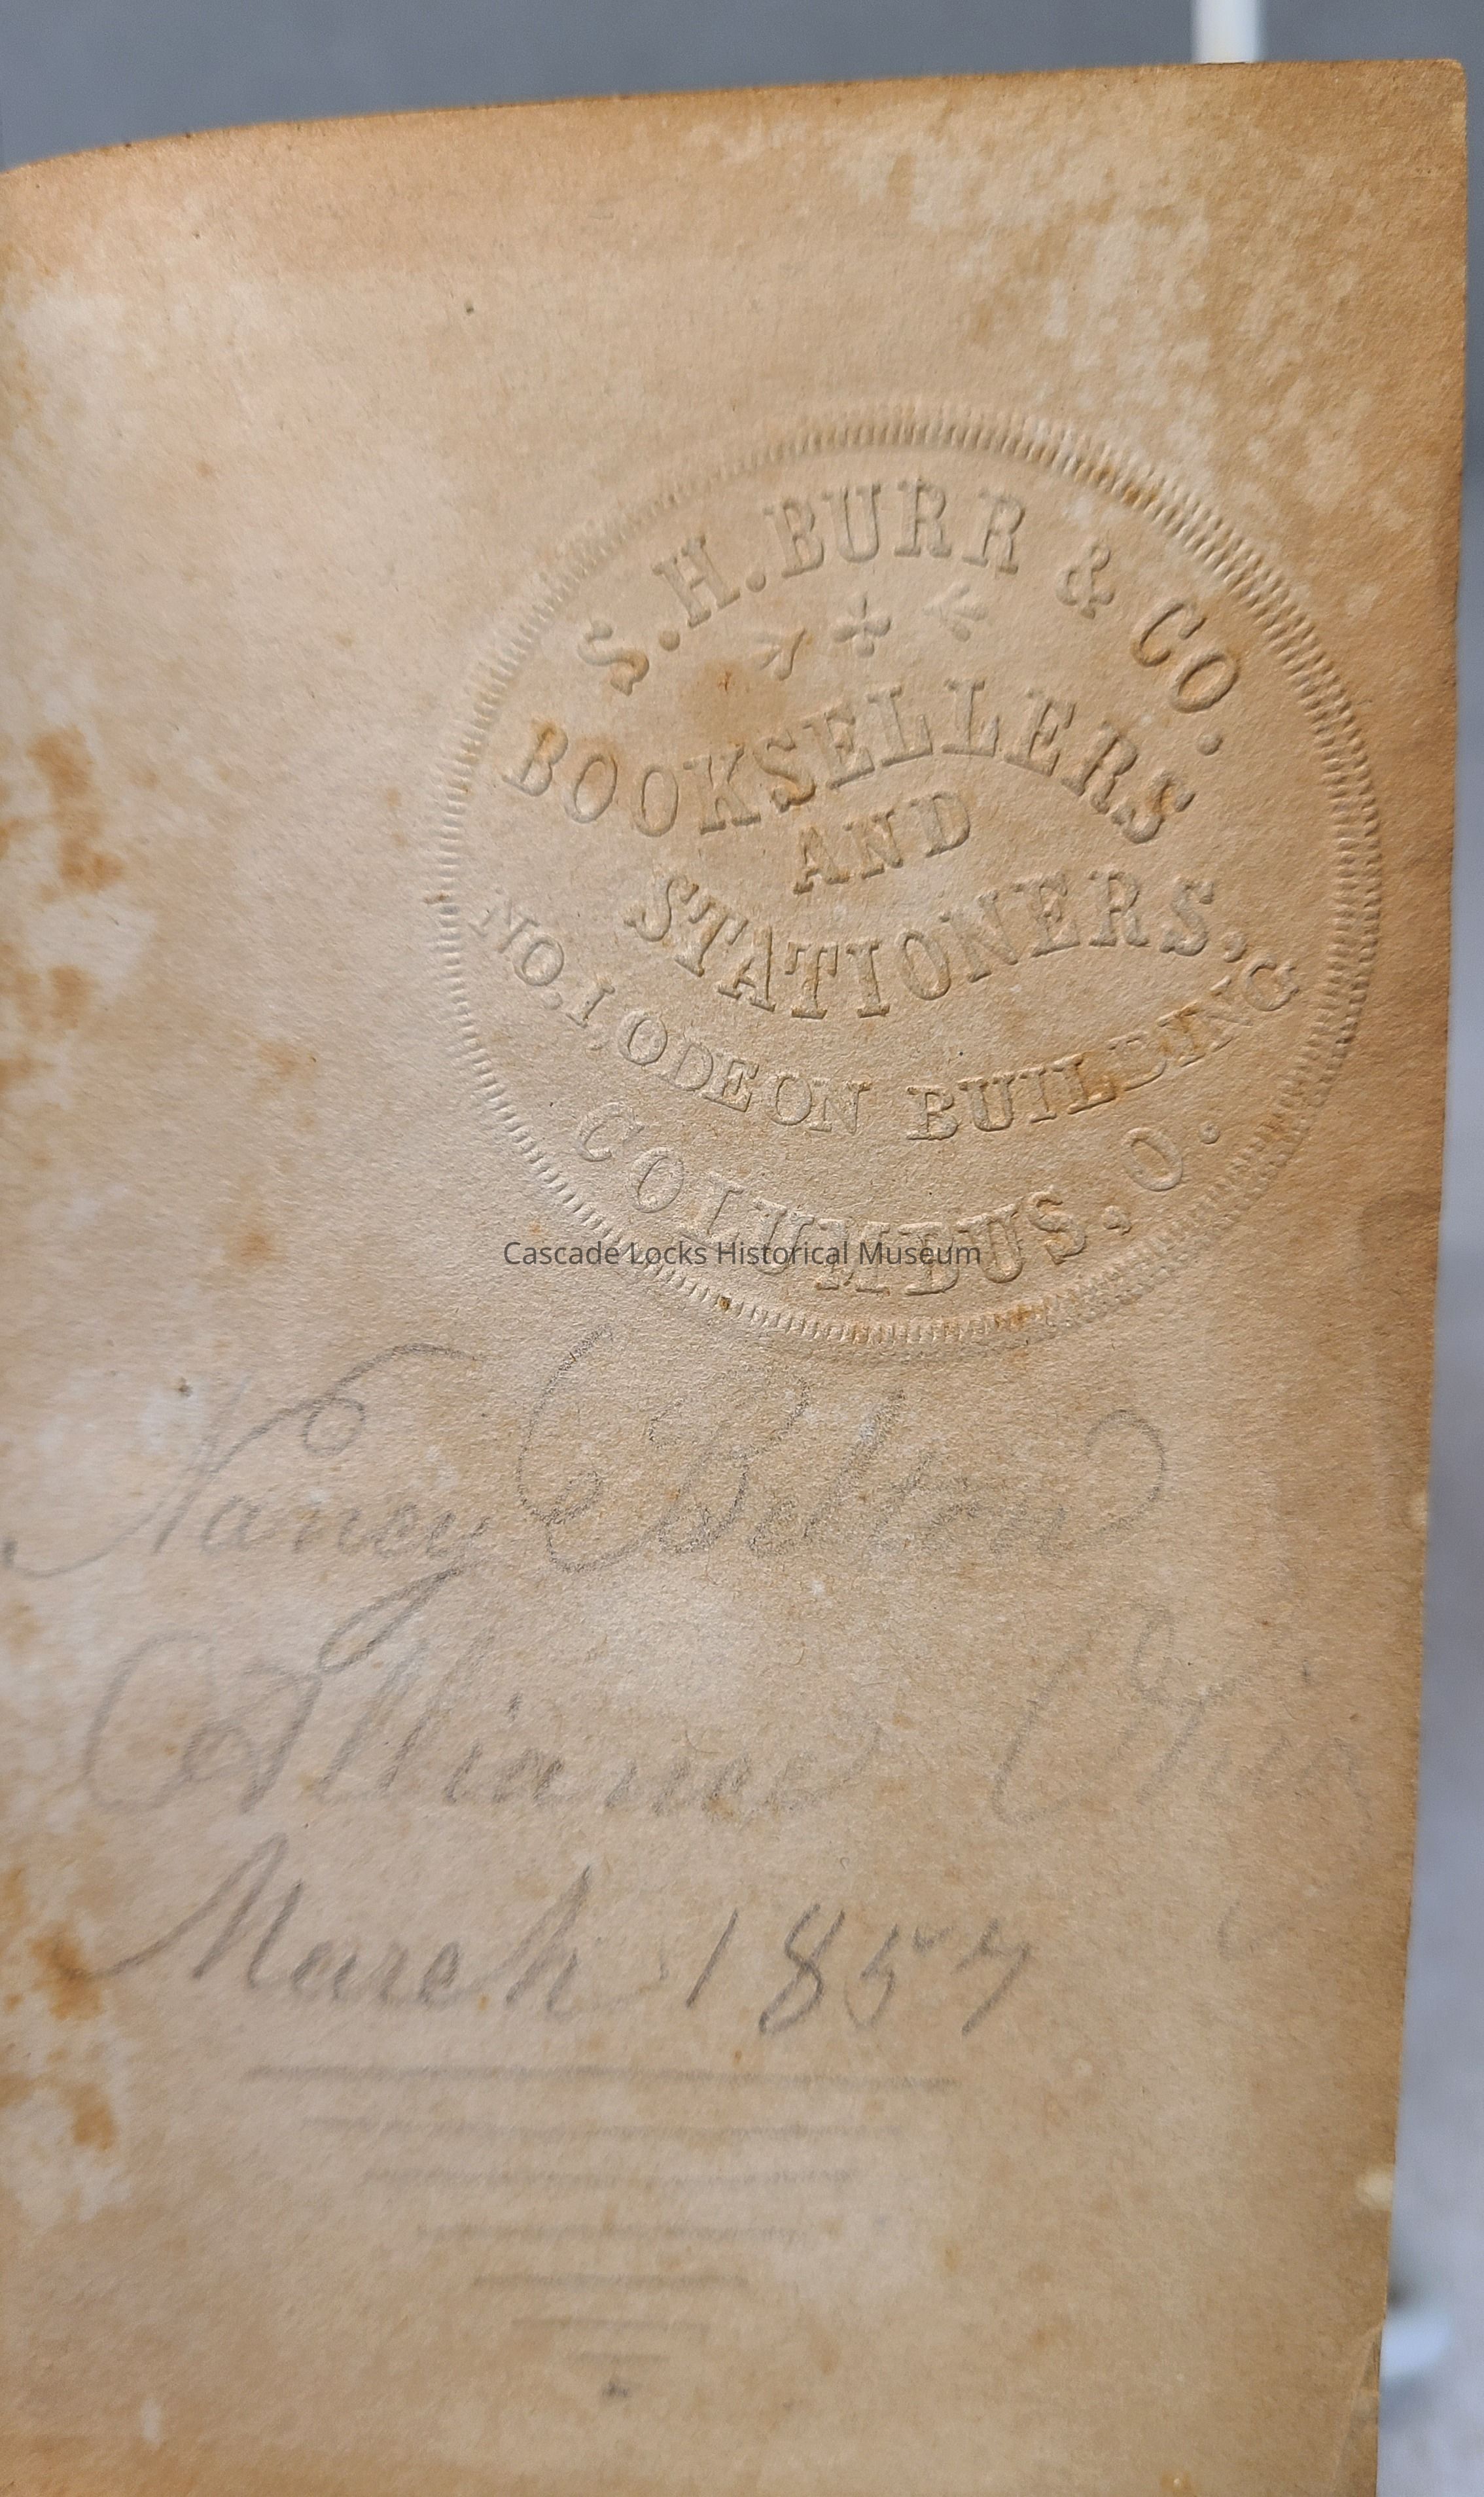 S. H. BURR & CO.
BOOKSELLERS
AND
STATIONERS,
NO. 1, ODEON BUILDING
COLUMBUS, O.
Cascade Locks Historical Museum
Nancy
Alliance Ohio
March 1857